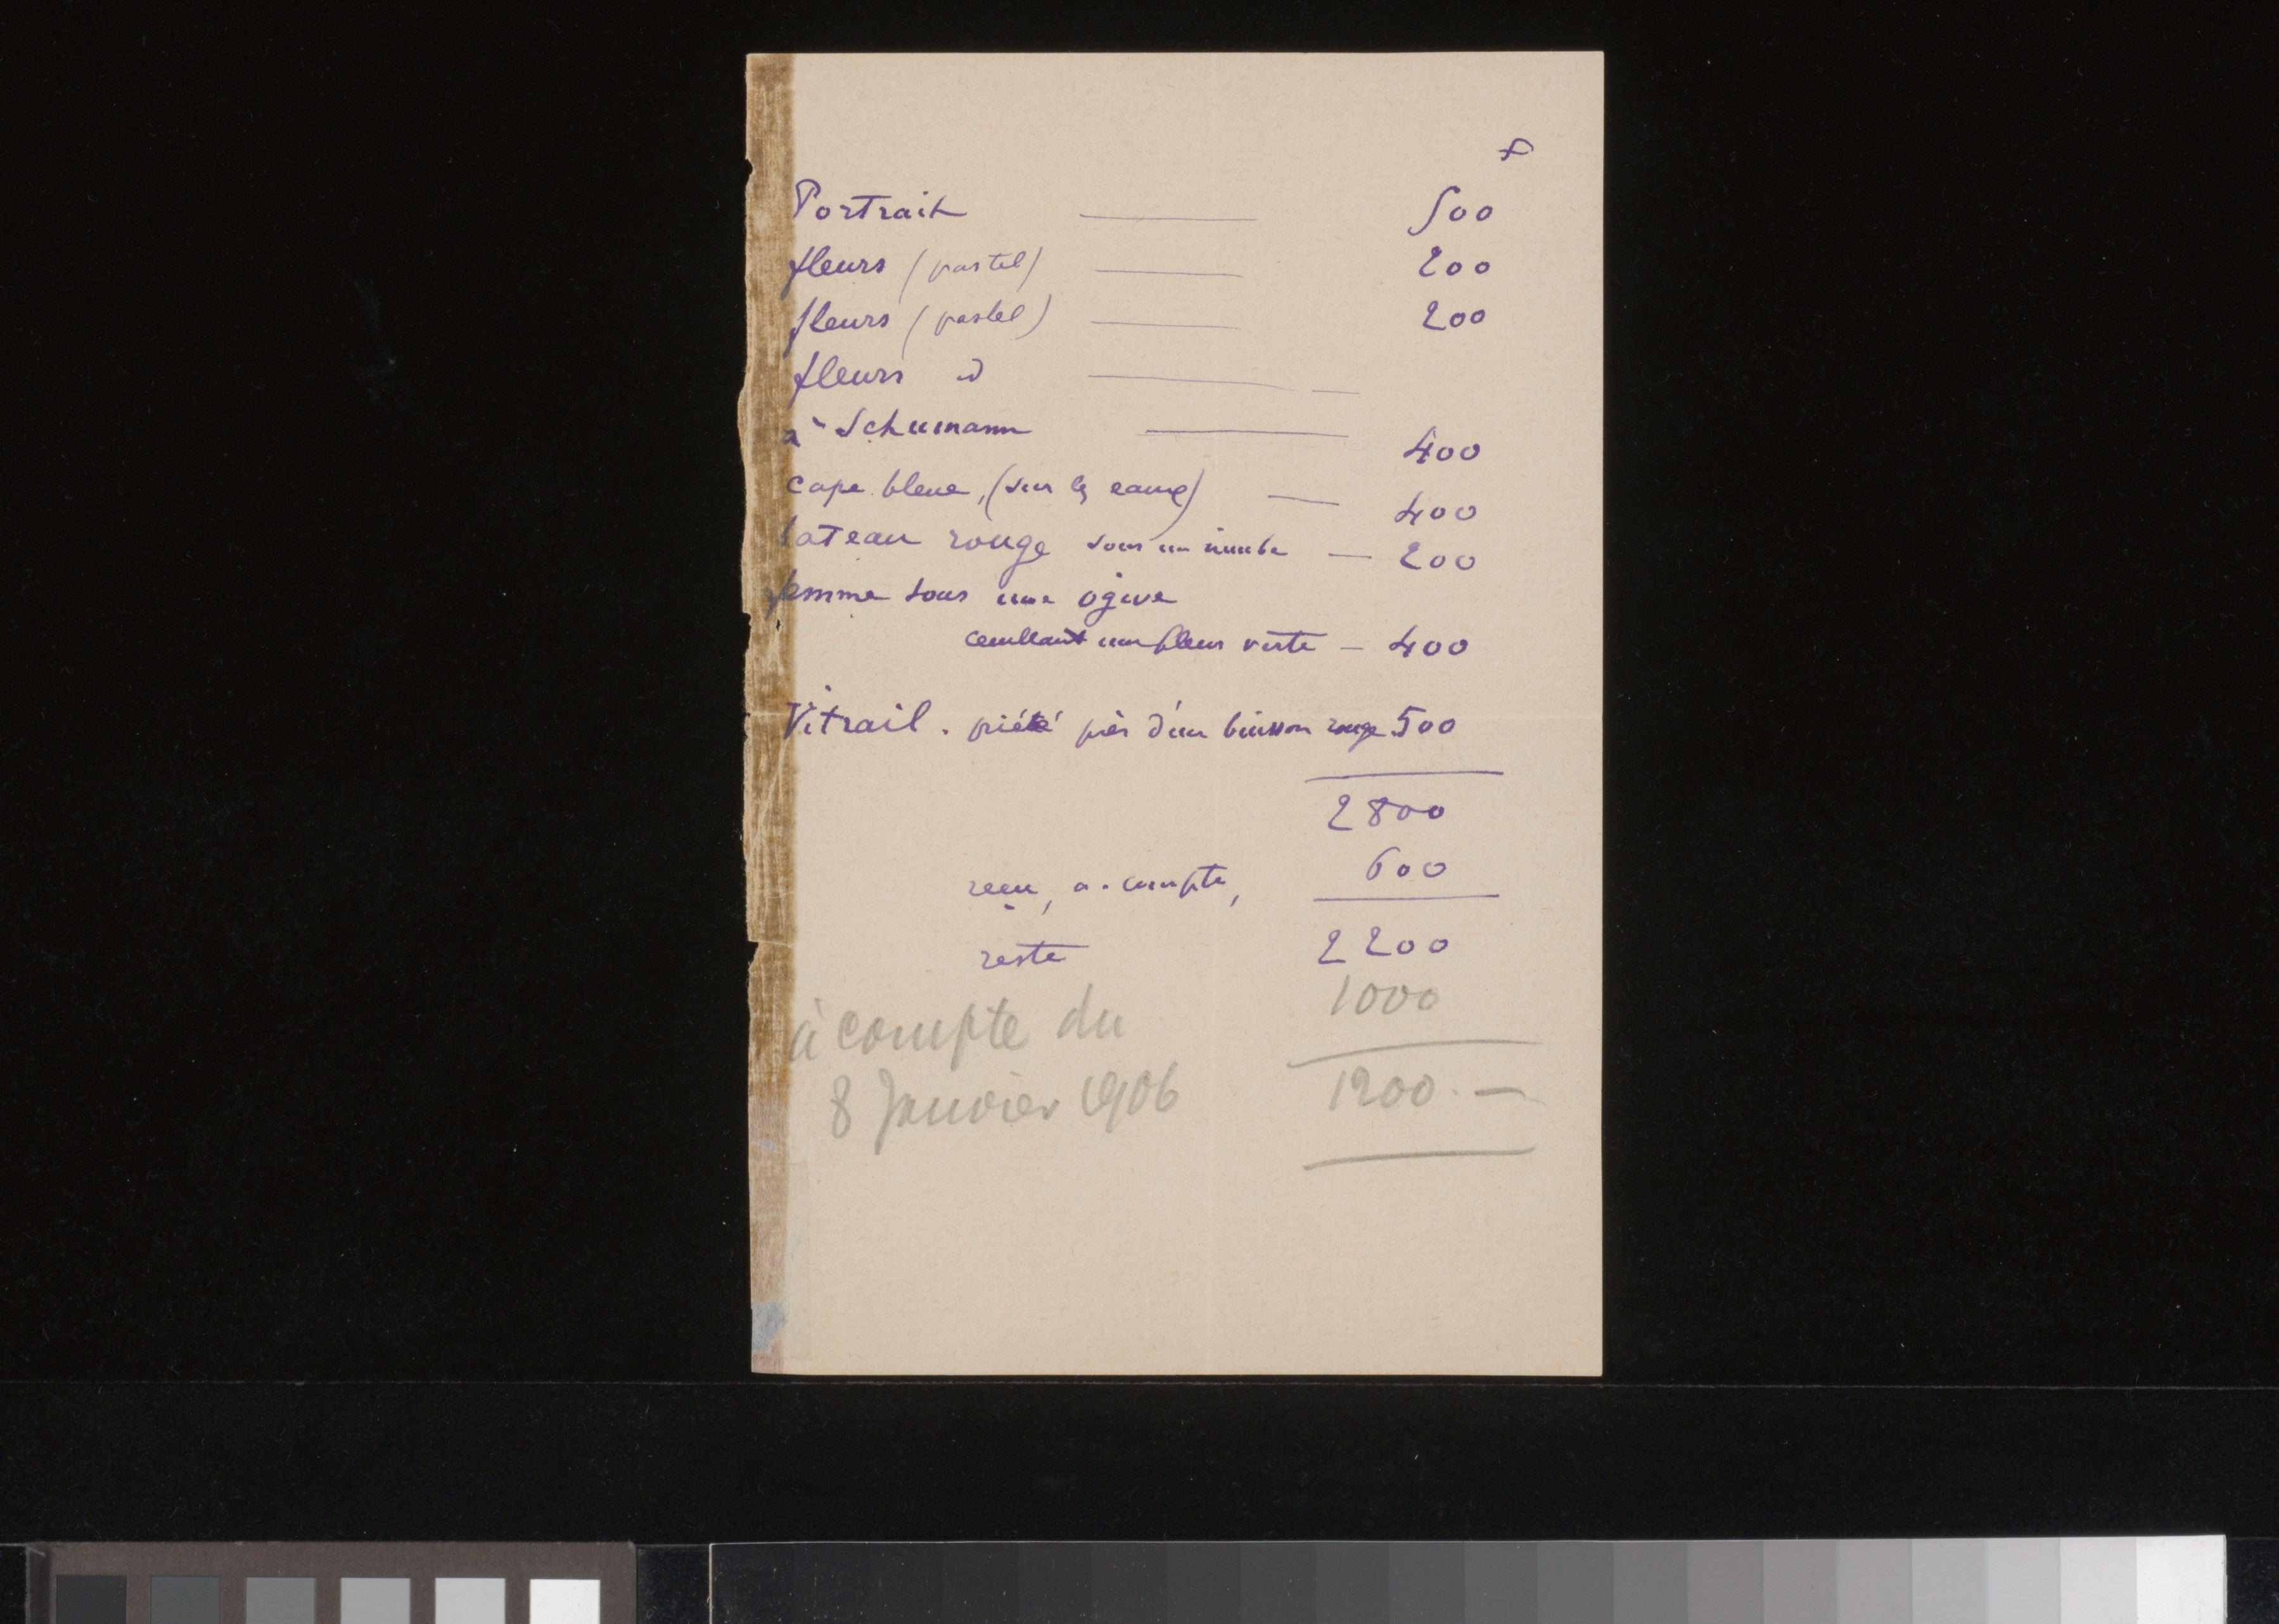 f
Portrait 500
fleurs (pastel) 200
fleurs (pastel) 200
fleurs d
à Schumann 400
cape bleue, (sur les eaux) 400
bateau rouge sous un nimbe — 200
femme sous une ogive
cueillant une fleur verte — 400
Vitrail. piété près d'un buisson rouge 500
2800
reçu, a-compte, 600
reste 2200
1000
à compte du
8 Janvier 1906 1200.—